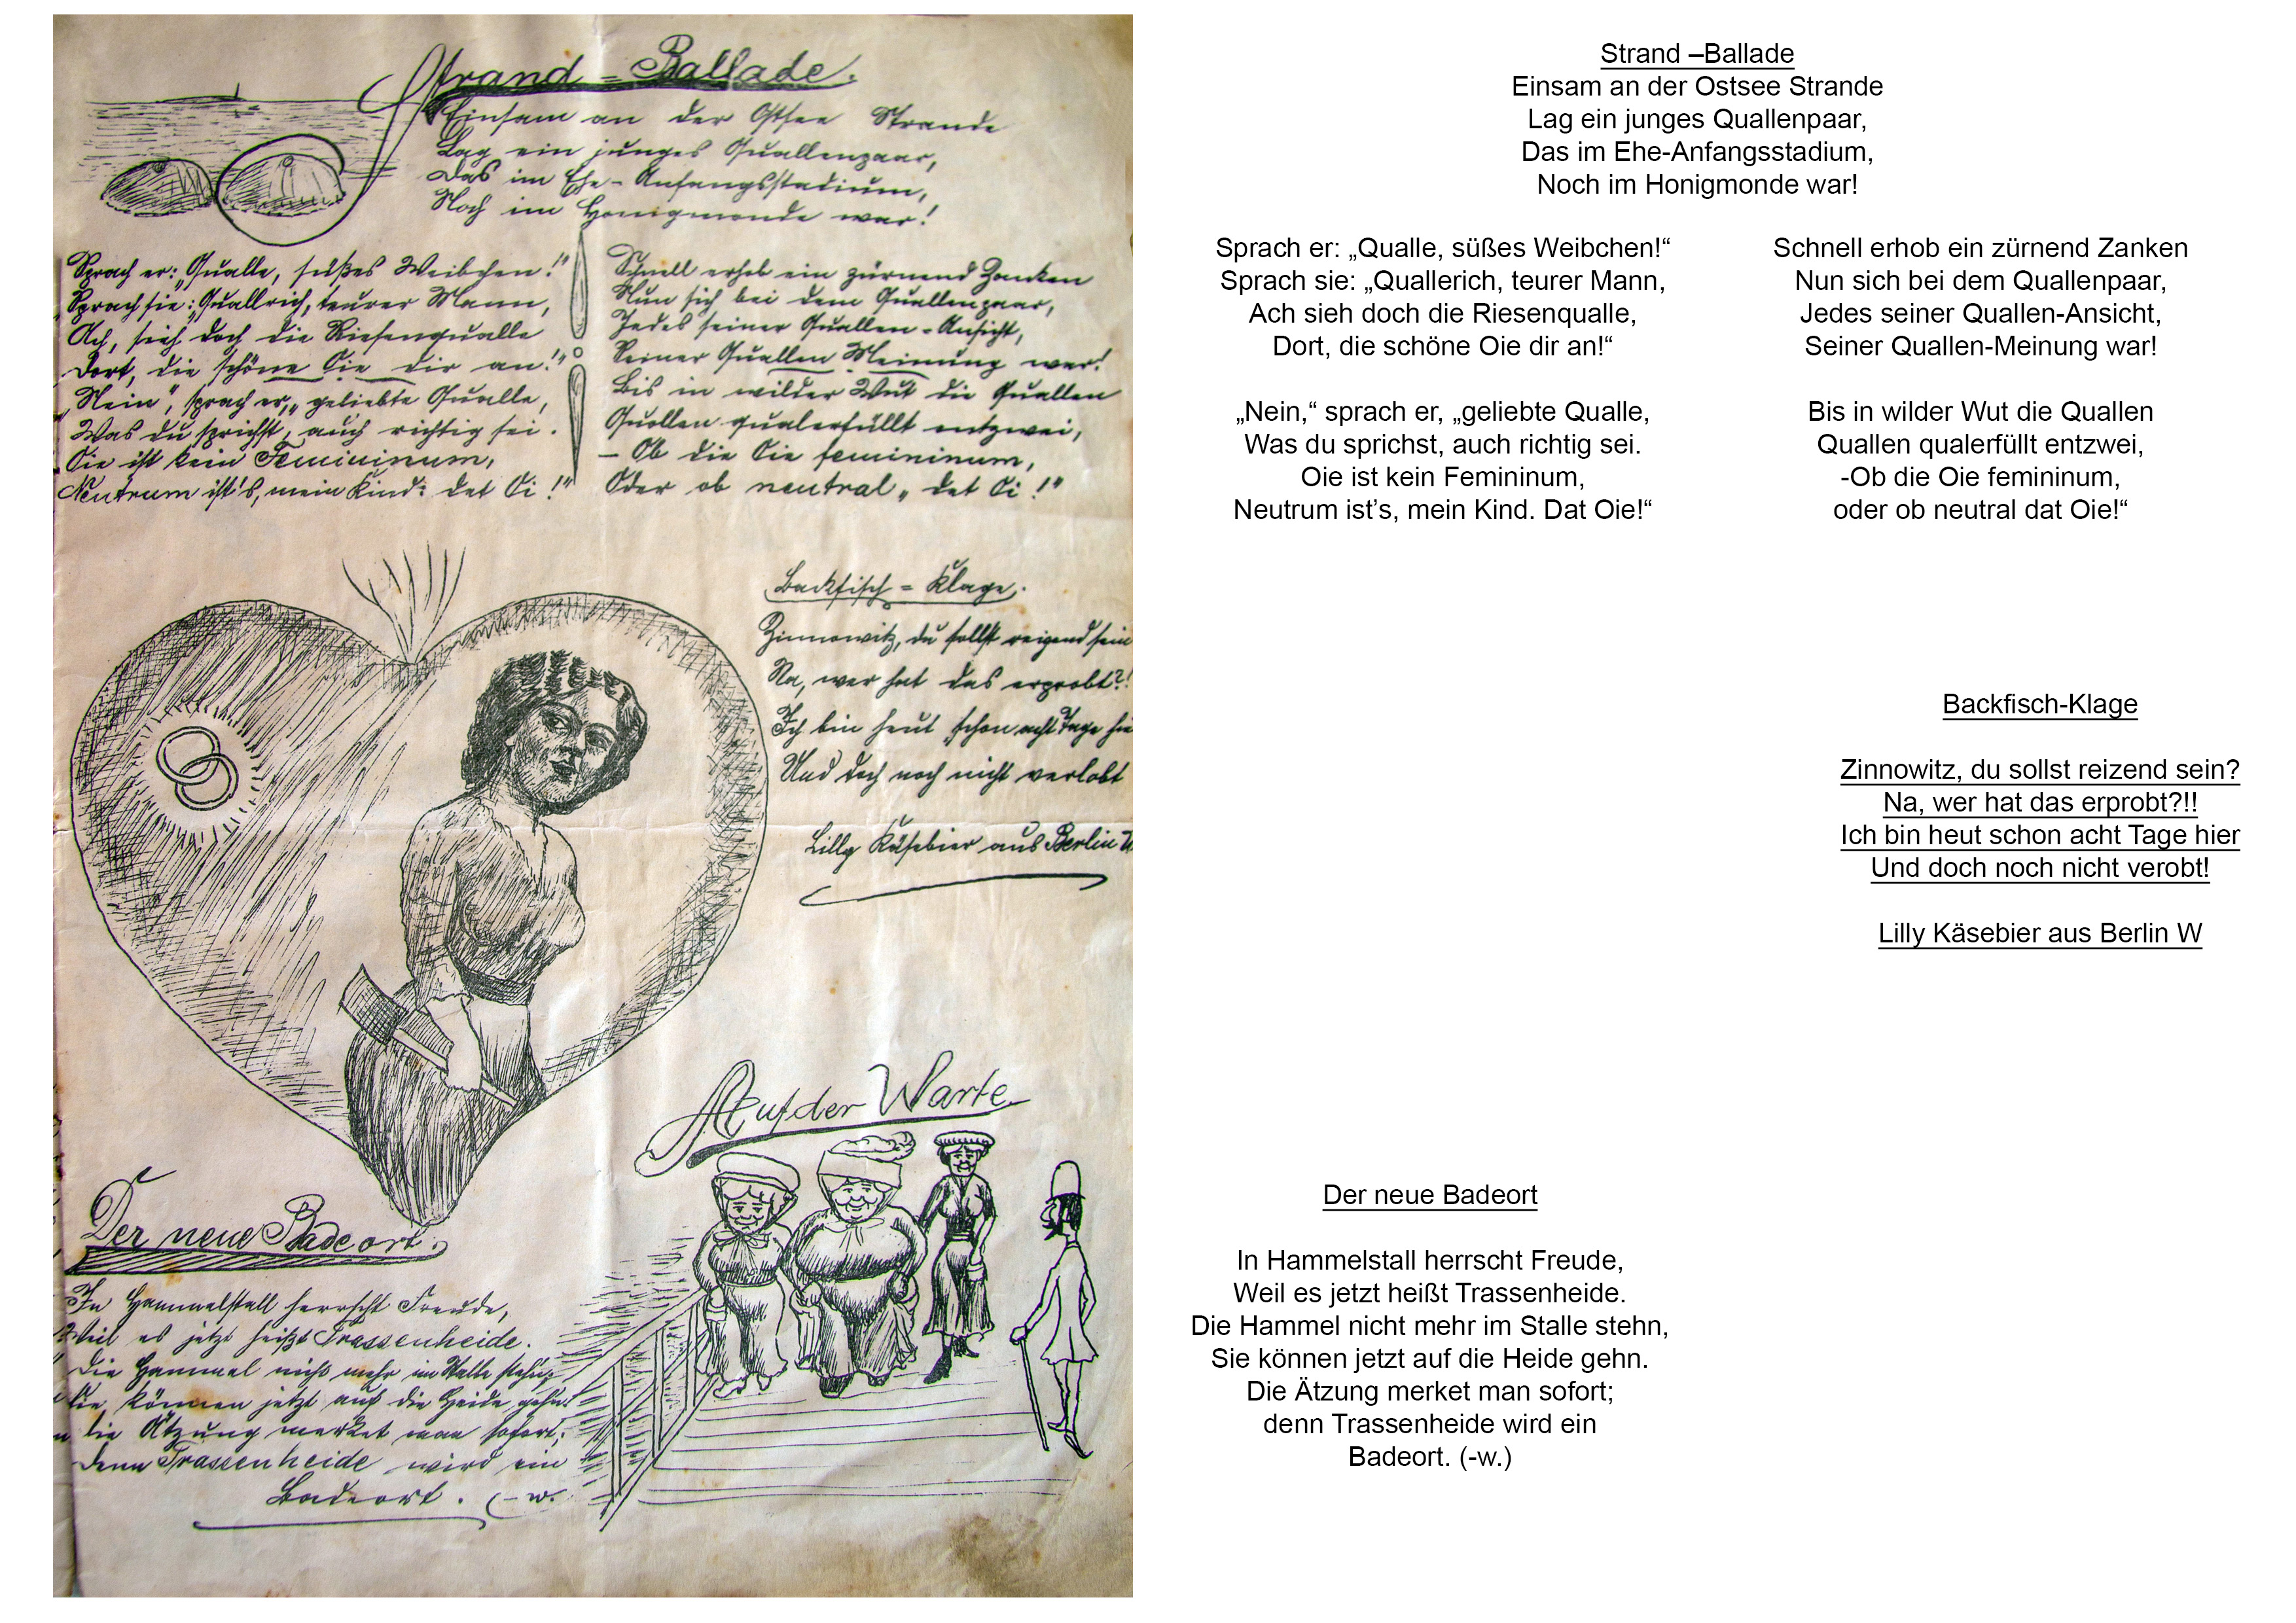 Strand - Ballade.
Einsam an der Ostsee Strande
Lag ein junges Quallenpaar,
Das im Ehe-Anfangsstadium,
Noch im Honigmonde war!
Sprach er: „Qualle, süßes Weibchen!"
Sprach sie: „Quallrich, teurer Mann,
Ach, sieh doch die Riesenqualle
Dort, die schöne Oie dir an!"
„Nein", sprach er, „geliebte Qualle,
Was du sprichst, auch richtig sei.
Oie ist kein Femininum,
Neutrum ist's, mein Kind: det Oi!"
Schnell erhob ein zürnend Zanken
Nun sich bei dem Quallenpaar,
Jedes seiner Quallen-Ansicht,
Seiner Quallen Meinung war!
Bis in wilder Wut die Quallen
Quollen qualerfüllt entzwei,
– Ob die Oie femininum,
Oder ob neutral „det Oi!"
Backfisch-Klage.
Zinnowitz, du sollst reizend sein
Na, wer hat das erprobt?!
Ich bin heut schon acht Tage hie
Und doch noch nicht verlobt
Lilly Käsebier aus Berlin W.
Auf der Warte
Der neue Badeort.
In Hammelstall herrscht Freude,
Weil es jetzt heißt Trassenheide.
Die Hammel nicht mehr im Stalle stehn,
Sie können jetzt auf die Heide gehn!
die Ätzung merket man sofort;
denn Trassenheide wird ein
Badeort. (-w.
Strand –Ballade
Einsam an der Ostsee Strande
Lag ein junges Quallenpaar,
Das im Ehe-Anfangsstadium,
Noch im Honigmonde war!
Sprach er: „Qualle, süßes Weibchen!“
Sprach sie: „Quallerich, teurer Mann,
Ach sieh doch die Riesenqualle,
Dort, die schöne Oie dir an!“
„Nein,“ sprach er, „geliebte Qualle,
Was du sprichst, auch richtig sei.
Oie ist kein Femininum,
Neutrum ist’s, mein Kind. Dat Oie!“
Schnell erhob ein zürnend Zanken
Nun sich bei dem Quallenpaar,
Jedes seiner Quallen-Ansicht,
Seiner Quallen-Meinung war!
Bis in wilder Wut die Quallen
Quallen qualerfüllt entzwei,
-Ob die Oie femininum,
oder ob neutral dat Oie!“
Backfisch-Klage
Zinnowitz, du sollst reizend sein?
Na, wer hat das erprobt?!!
Ich bin heut schon acht Tage hier
Und doch noch nicht verobt!
Lilly Käsebier aus Berlin W
Der neue Badeort
In Hammelstall herrscht Freude,
Weil es jetzt heißt Trassenheide.
Die Hammel nicht mehr im Stalle stehn,
Sie können jetzt auf die Heide gehn.
Die Ätzung merket man sofort;
denn Trassenheide wird ein
Badeort. (-w.)